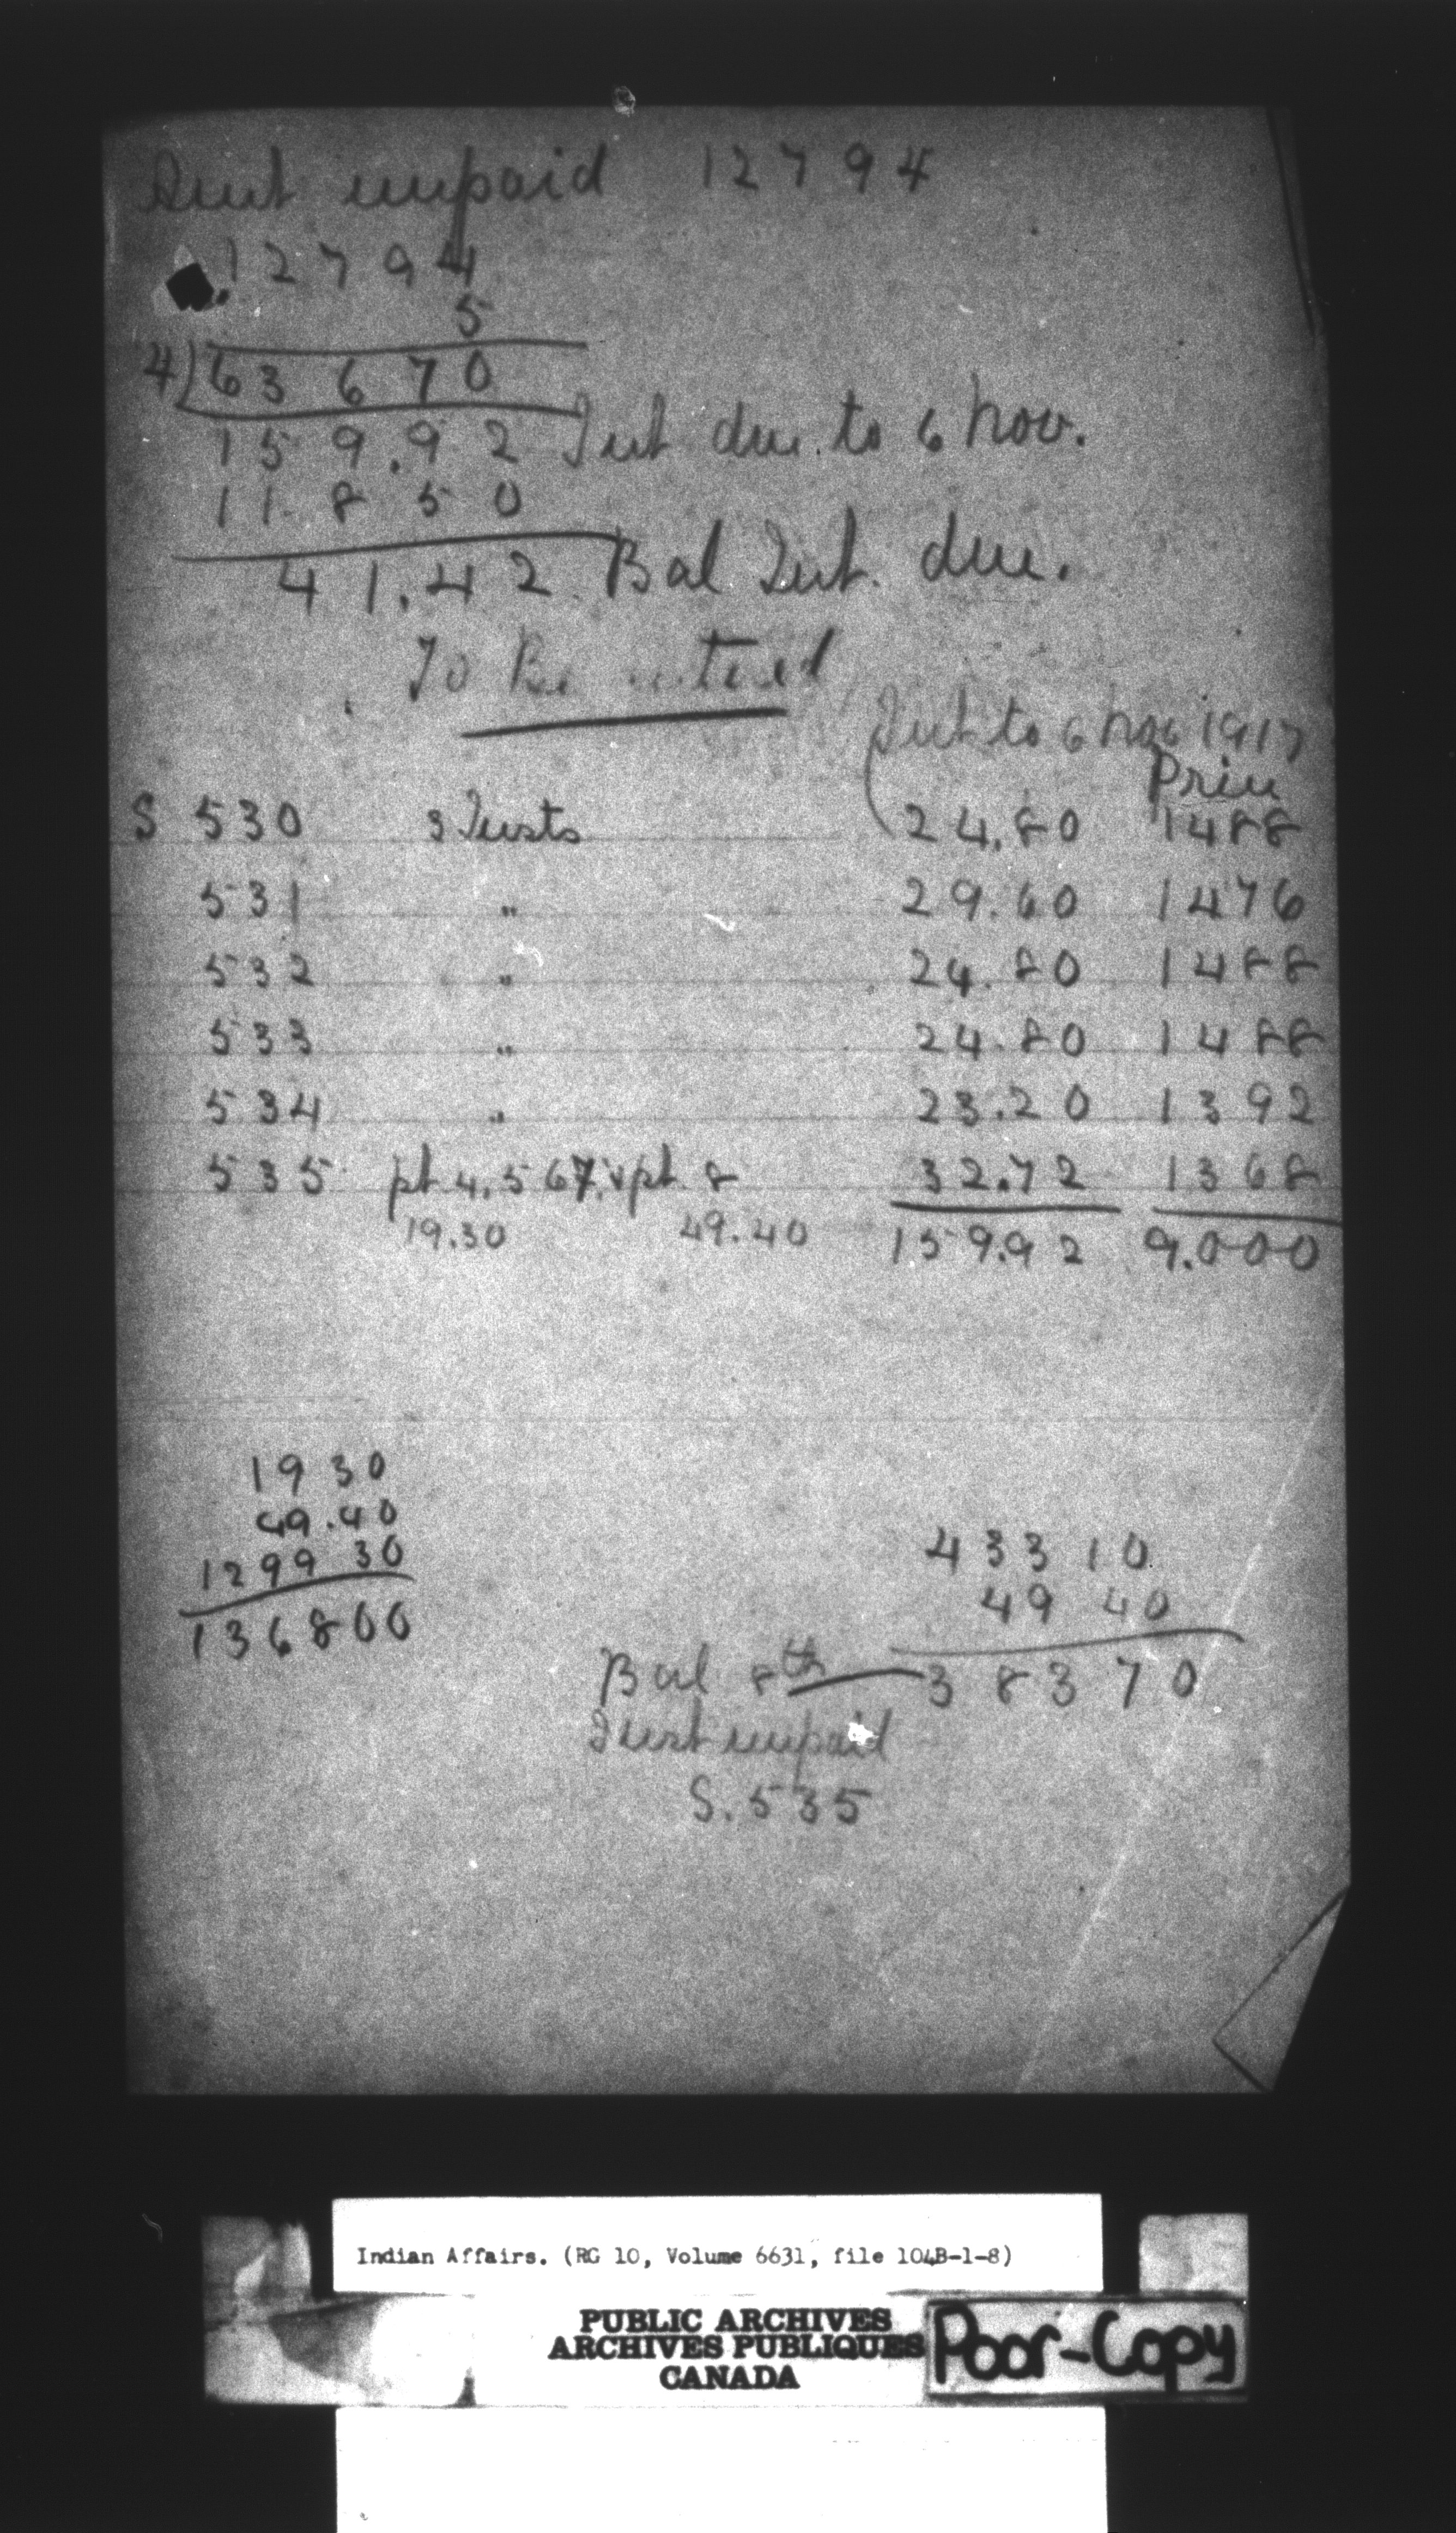 Int unpaid 12794
.12794
5
4) 63670
159.92 Int due to 6 Nov.
118 50
41.42 Bal Int. due.
To Be entered
Int to 6 Nov 1917
Prin
S 530 3 Insts 24.80 1488
531 " 29.60 1476
532 " 24.80 1488
533 " 24.80 1488
534 " 23.20 1392
535 pt 4, 5 6 7, & pt 8 32.72 1368
19.30 49.40 159.92 9.000
1930
49.40
1299 30
136800
433 10
49 40
Bal 8th 383 70
Inst unpaid
S. 535
Indian Affairs. (RG 10, Volume 6631, file 104B-1-8)
PUBLIC ARCHIVES
ARCHIVES PUBLIQUES
CANADA
Poor-Copy